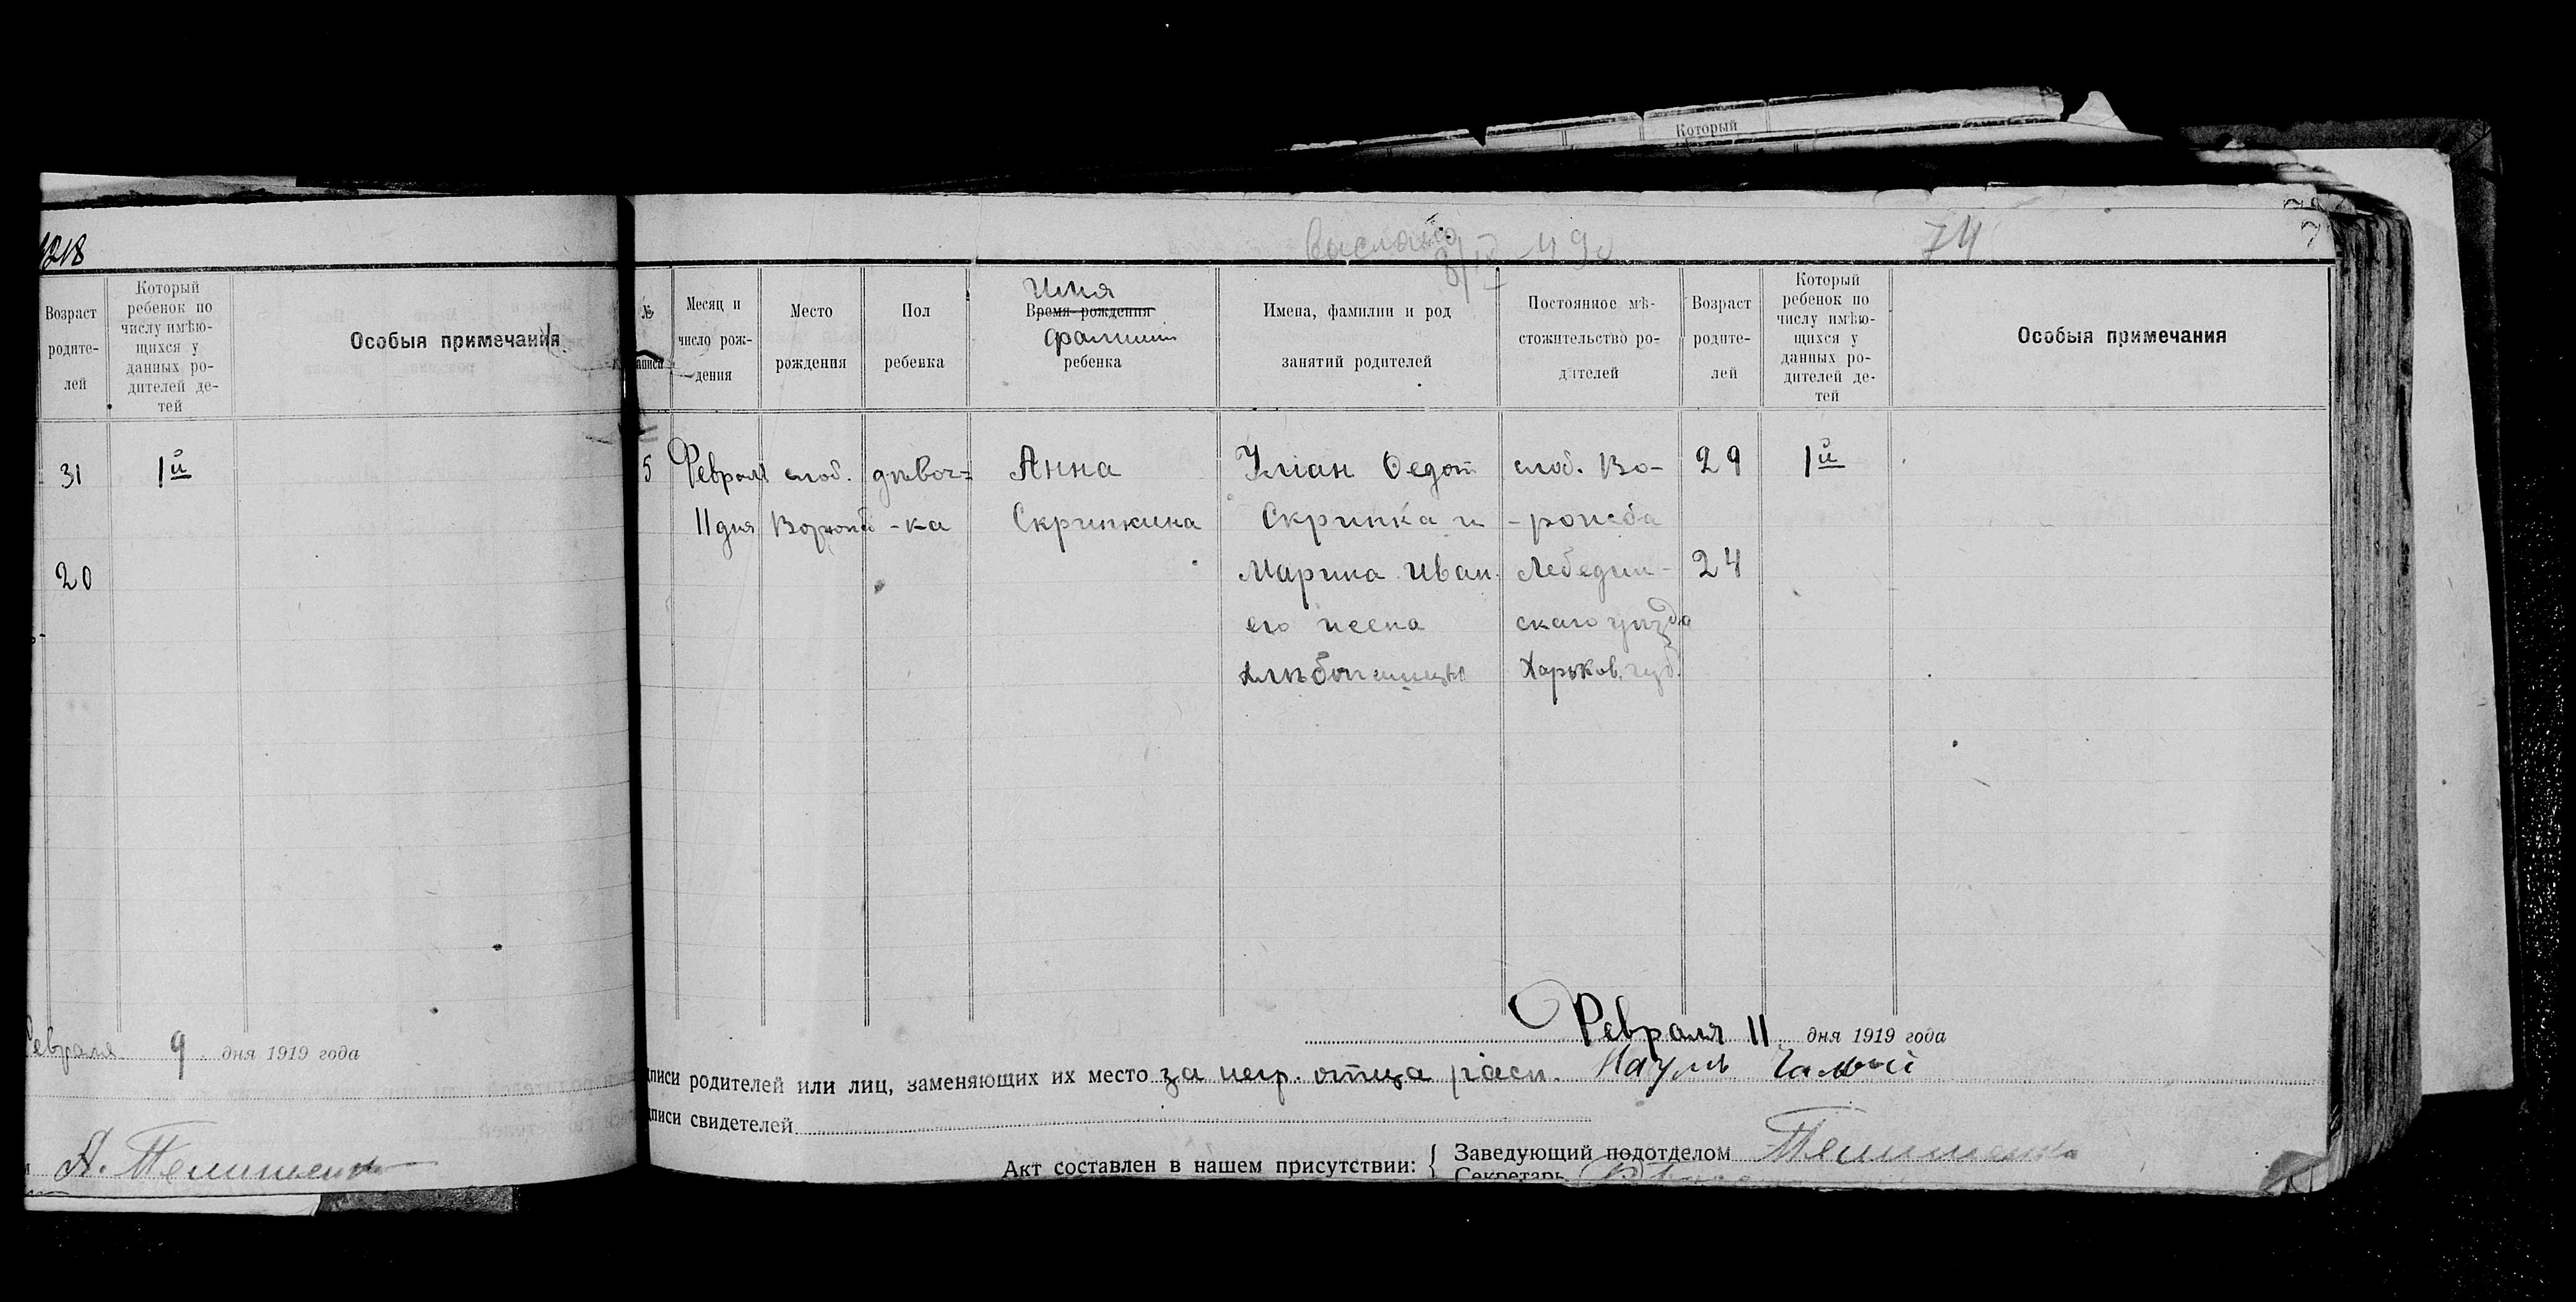 Который
1218
Возраст родите- лей
Который ребенок по числу имѣю- щихся у данных ро- дителей де- тей
Особыя примечания
31
1й
20
Февраля 9 дня 1919 года
А.
74
№ записи
Месяц и число рож- дения
Место рождения
Пол ребенка
Имя
Время рождения
фамилия
ребенка
Имена, фамилии и род занятий родителей
Постоянное мѣ- стожительство ро- дителей
Возраст родите- лей
Который ребенок по числу имѣю- щихся у данных ро- дителей де- тей
Особыя примечания
5 Февраля слоб. дѣвоч= Анна Федот слоб. Во- 29 1й
11 дня -ка Скрипкина Скрипка и
Марина Иван. Лебедин- 24
его жена скаго уѣзда
хлѣбопашцы Харьков. губ.
Февраля 11 дня 1919 года
дписи родителей или лиц, заменяющих их место за негр. отца расп. Наумъ
дписи свидетелей
Акт составлен в нашем присутствии: { Заведующий подотделом
Секретарь